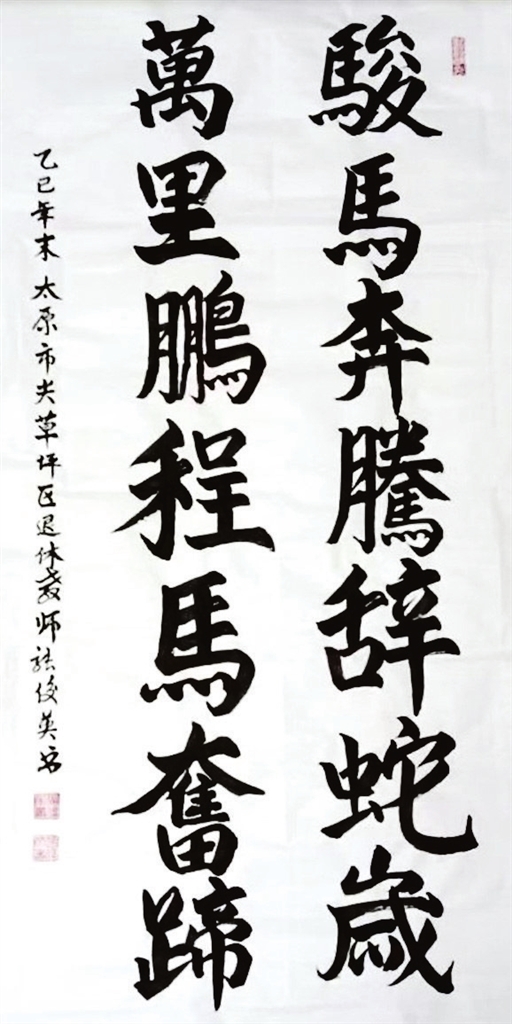 駿馬奔騰辞蛇歲
萬里鵬程馬奮蹄
乙巳年末太原市尖草坪区退休教师張俊英书